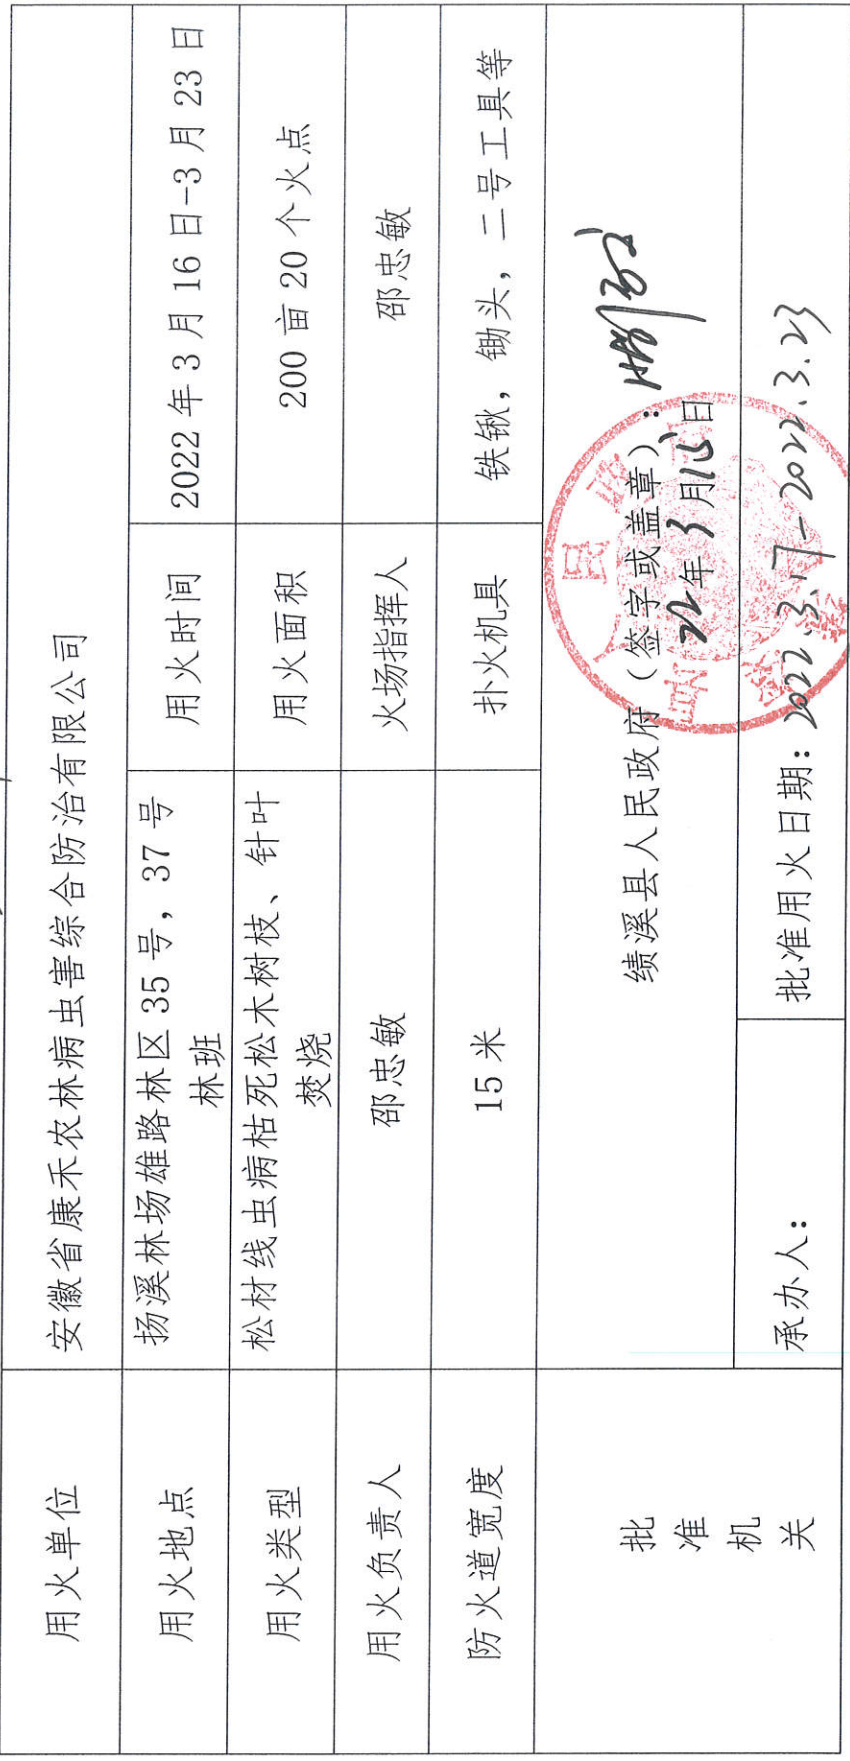 用火单位
安徽省康禾农林病虫害综合防治有限公司
用火地点
扬溪林场雄路林区 35 号，37 号
林班
用火时间
2022 年 3 月 16 日-3 月 23 日
用火类型
松材线虫病枯死松木树枝、针叶
焚烧
用火面积
200 亩 20 个火点
用火负责人
邵忠敏
火场指挥人
邵忠敏
防火道宽度
15 米
扑火机具
铁锹，锄头，二号工具等
批
准
机
关
绩溪县人民政府（签字或盖章）：
年 3 月 日
承办人：
批准用火日期：2022.3.17-2022.3.23